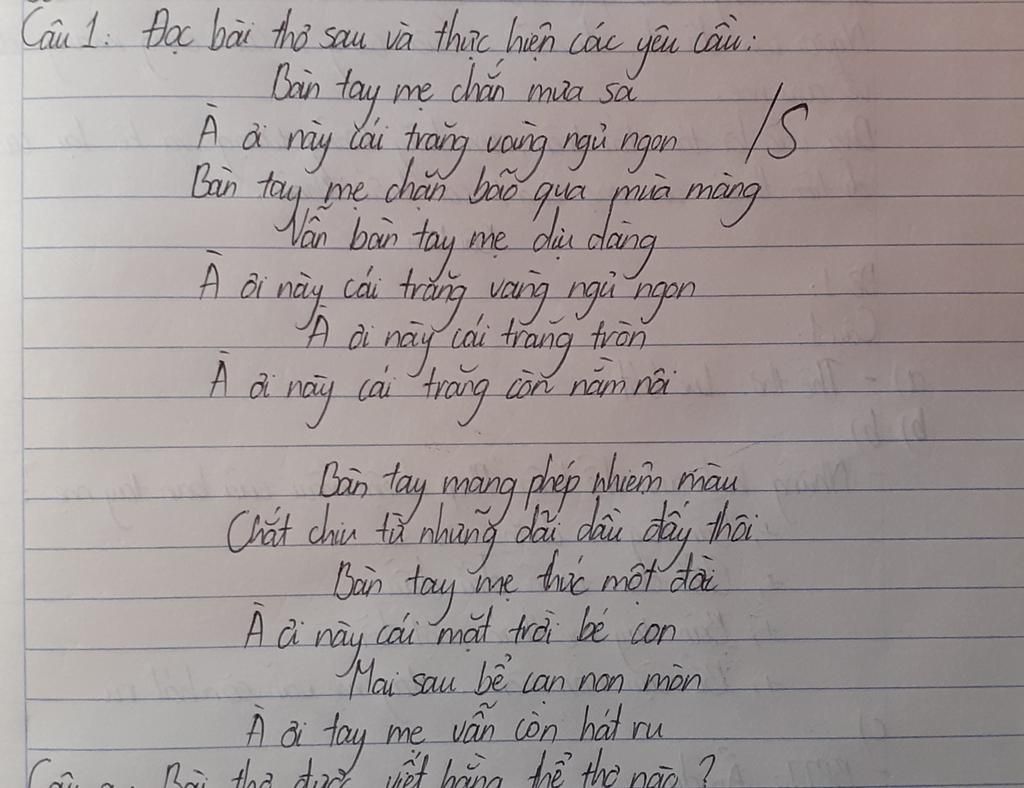 Câu 1: Đọc bài thơ sau và thực hiện các yêu cầu:
Bàn tay mẹ chắn mưa sa
À ơi này cái trăng vàng ngủ ngon /S
Bàn tay mẹ chặn bão qua mùa màng
Vẫn bàn tay mẹ dịu dàng
À ơi này cái trăng vàng ngủ ngon
À ơi này cái trăng tròn
À ơi này cái trăng còn nằm nôi
Bàn tay mang phép nhiệm màu
Chắt chiu từ những dãi dầu đấy thôi
Bàn tay mẹ thức một đời
À ơi này cái mặt trời bé con
Mai sau bể cạn non mòn
À ơi tay mẹ vẫn còn hát ru
Bài thơ được viết bằng thể thơ nào?